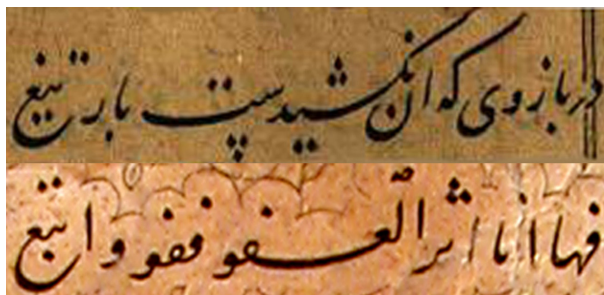 در بازوی که ان نکشیدست بار تیغ
فها انا اثر العفو ففو و اتبع